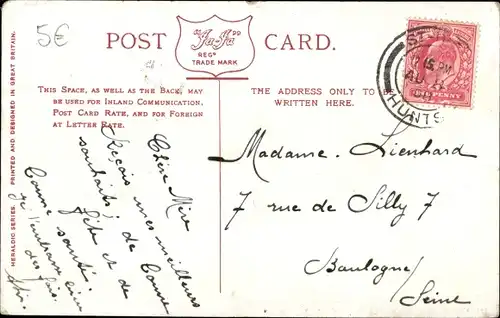 5€
POST
"Ja-Ja"
REGD
TRADE MARK
CARD.
THIS SPACE, AS WELL AS THE BACK, MAY
BE USED FOR INLAND COMMUNICATION,
POST CARD RATE, AND FOR FOREIGN
AT LETTER RATE.
THE ADDRESS ONLY TO BE
WRITTEN HERE.
HERALDIC SERIES. PRINTED AND DESIGNED IN GREAT BRITAIN.
Chère Mère
Reçois mes meilleurs
souhaits, de bonne
fête et de
bonne santé.
je t'embrasse
Madame. Lienhard
7 rue de Silly 7
Boulogne/
Seine
HUNTS